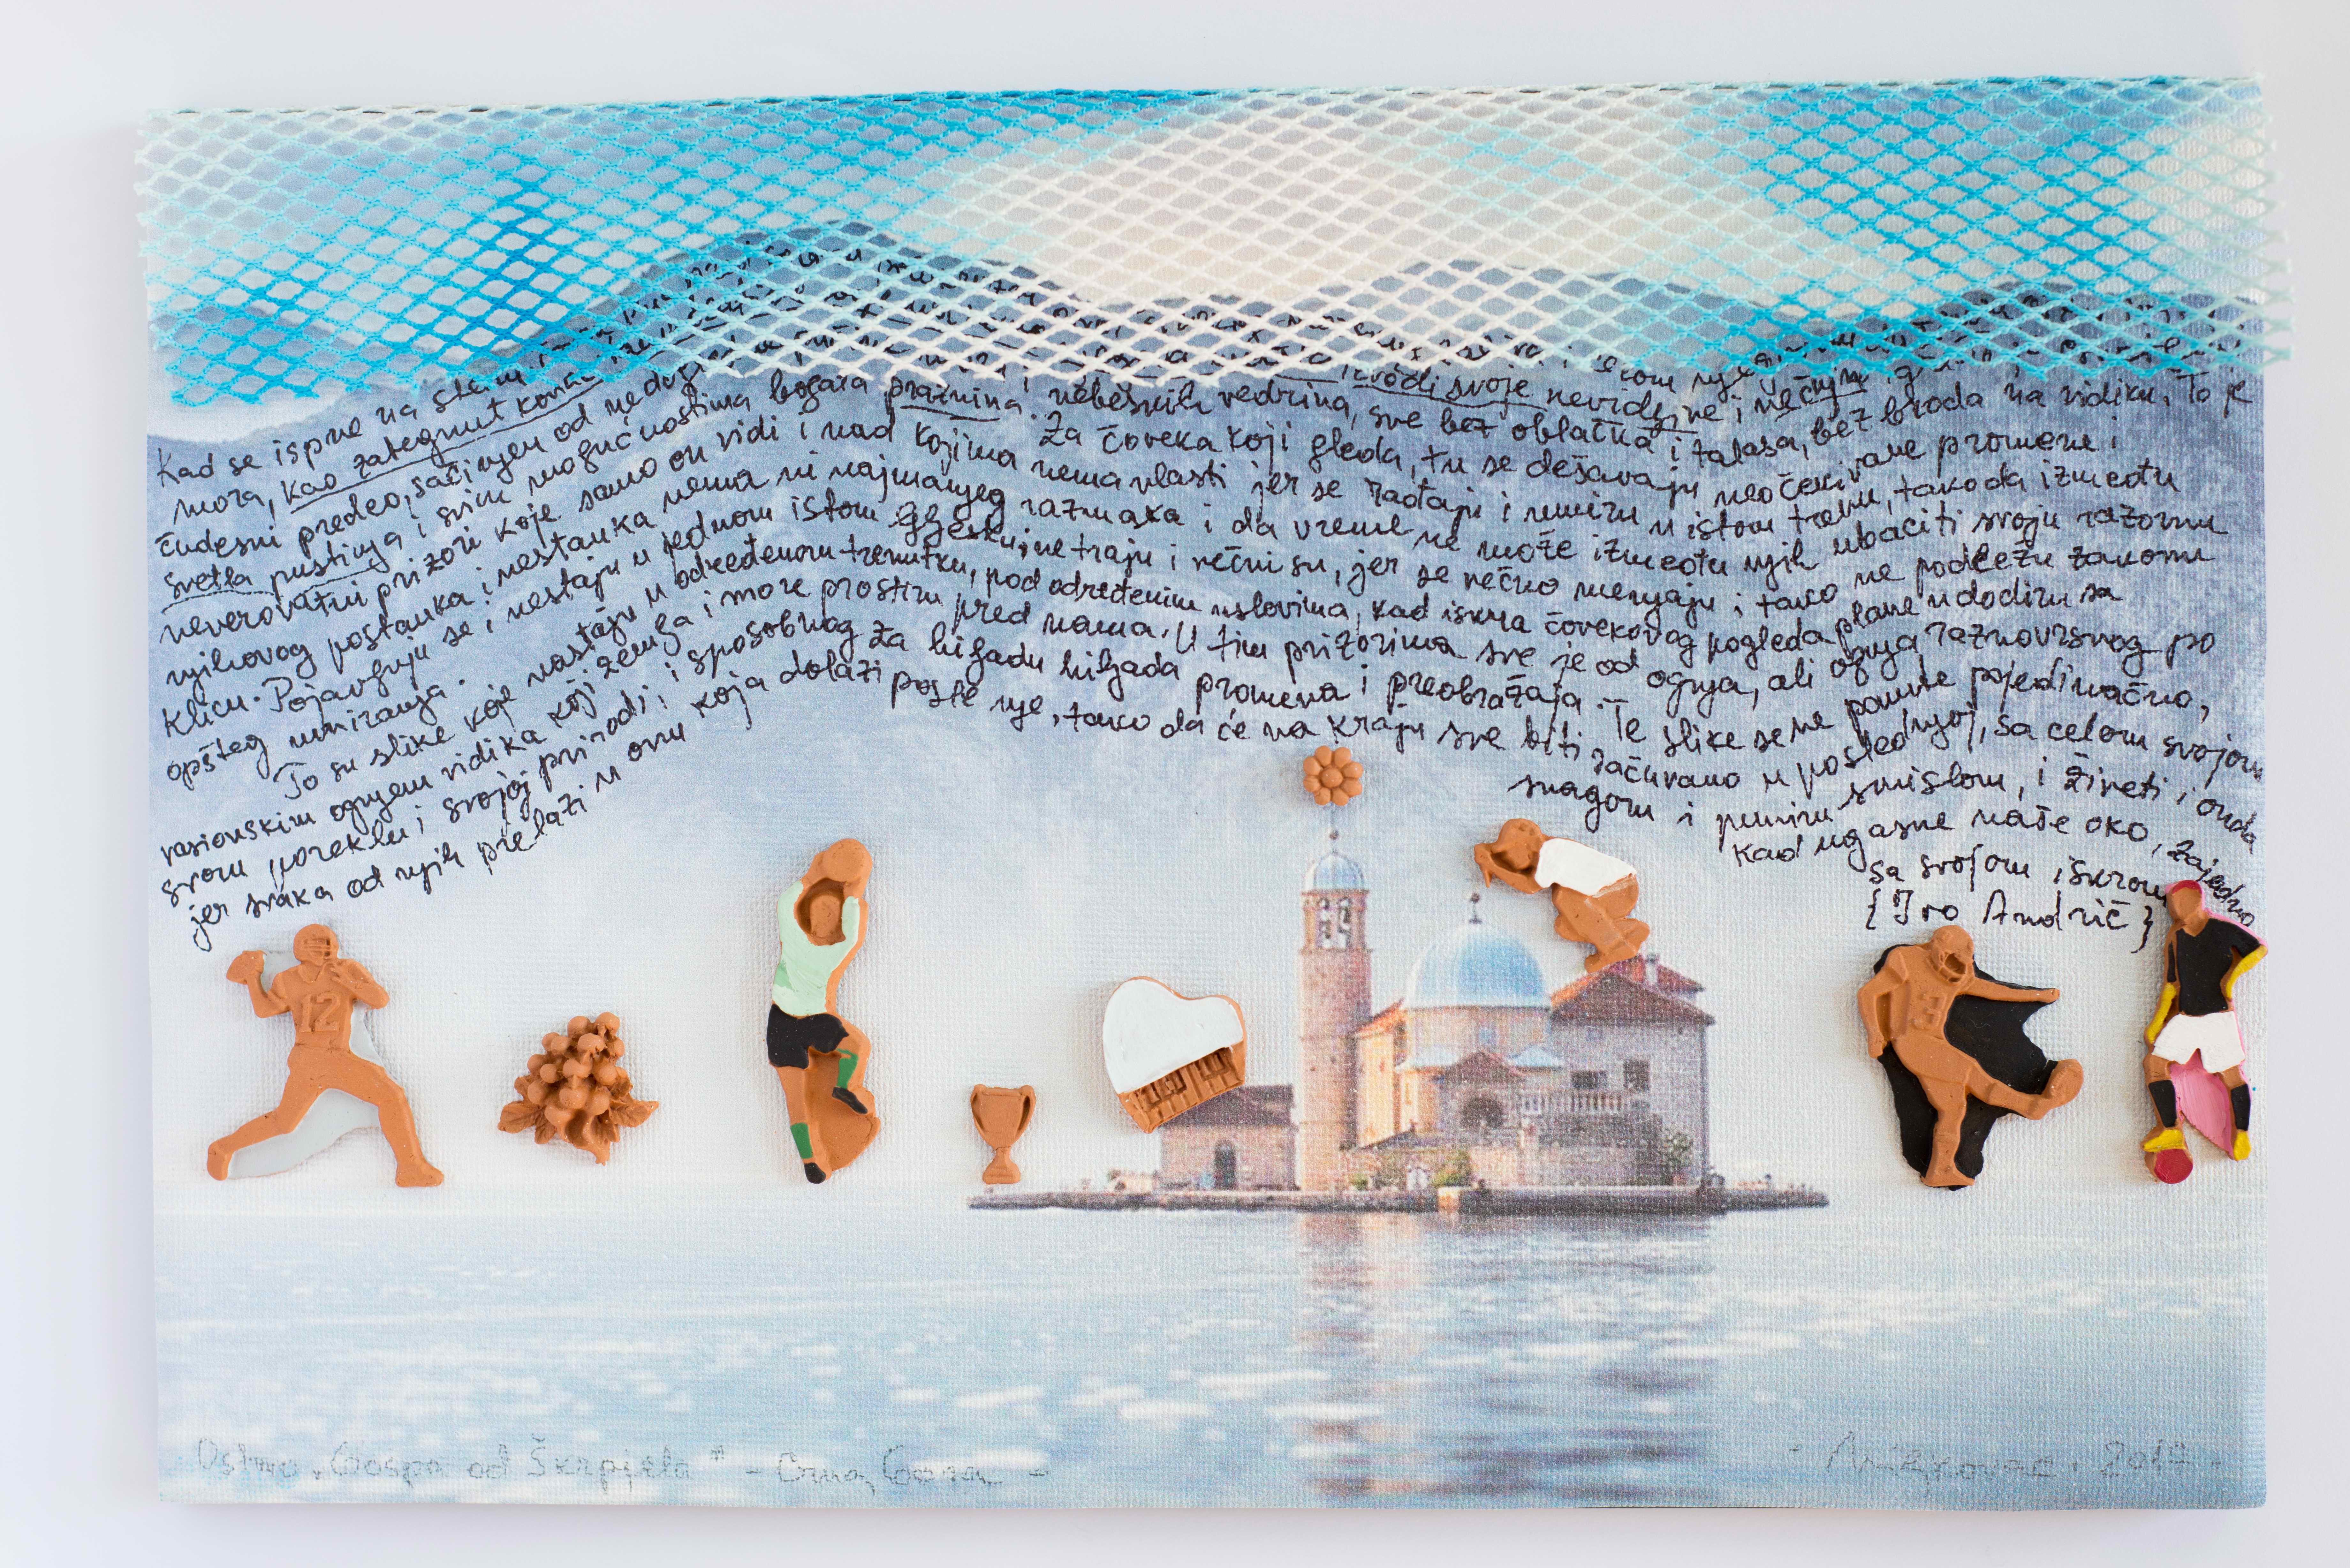 Kad se ispne na
mora, kao zategnut izvodi svoje nevidljive i večnim
čudesni predeo, sačinjen od i nebeskih vedrina, sve bez oblačka i talasa, bez broda na vidiku. To je
svetla pustinja i svim mogućnostima bogata praznina. Za čoveka koji gleda, tu se dešavaju neočekivane promene i
neverovatni prizori koje samo on vidi i nad kojima nema vlasti jer se rađaju i umiru u istom trenu, tako da između
njihovog postanka i nestanka nema ni najmanjeg razmaka i da vreme ne može između njih ubaciti svoju razornu
klicu. Pojavljuju se i nestaju u jednom istom bljesku, ne traju i večni su, jer se večno menjaju i tako ne podležu zakonu
opšteg umiranja.
To su slike koje nastaju u određenom trenutku, pod određenim uslovima, kad iskra čovekovog pogleda plane u dodiru sa
vasionskim ognjem vidika koji zemlja i more prostiru pred nama. U tim prizorima sve je od ognja, ali ognja raznovrsnog po
svom poreklu i svojoj prirodi i sposobnog za hiljadu hiljada promena i preobražaja. Te slike se ne pamte pojedinačno,
jer svaka od njih prelazi u onu koja dolazi posle nje, tako da će na kraju sve biti sačuvano u poslednjoj, sa celom svojom
snagom i punim smislom, i živeti i onda
kad ugasne naše oko, zajedno
sa svojom iskrom.
{Ivo Andrić}
12
3
Ostrvo „Gospa od Škrpjela" - Crna Gora -